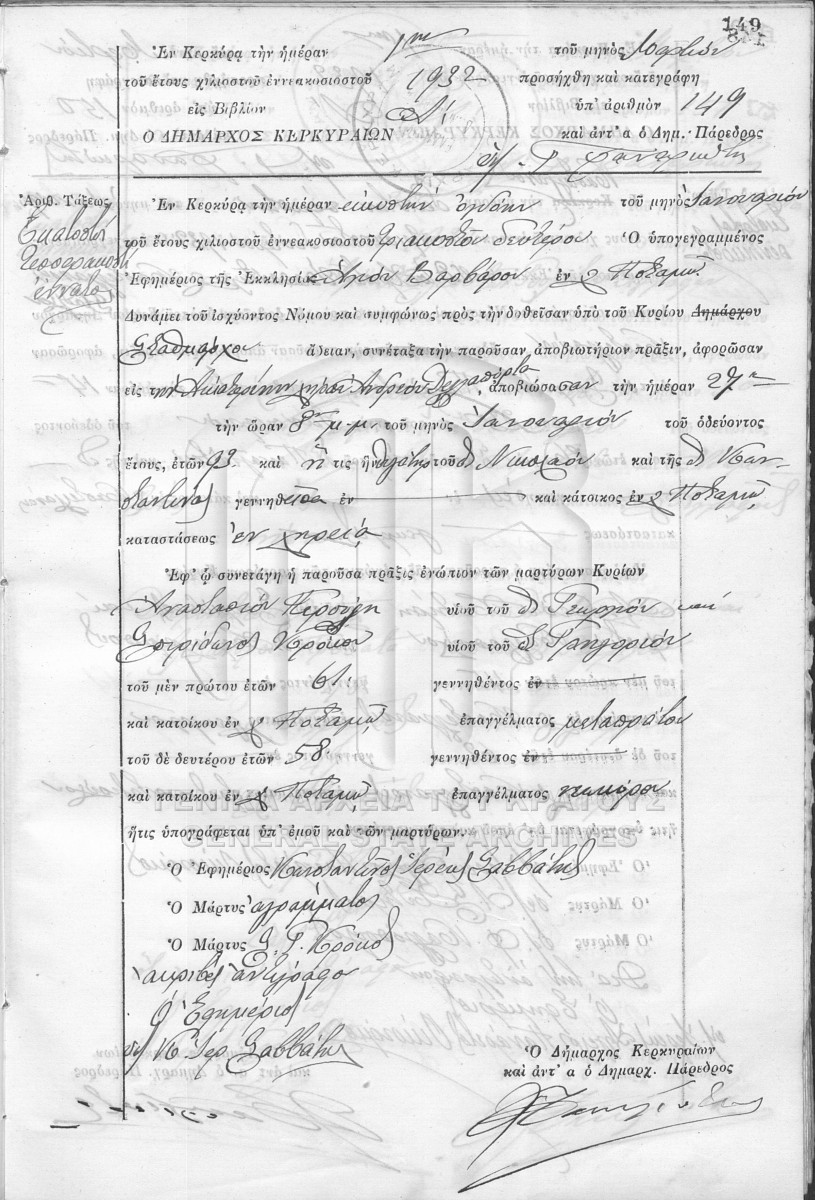 149
Ἐν Κερκύρᾳ τὴν ἡμέραν 1ην τοῦ μηνὸς Μαρτίου
τοῦ ἔτους χιλιοστοῦ ἐννεακοσιοστοῦ 1932 προσήχθη καὶ κατεγράφη
εἰς Βιβλίον Α! ὑπ' ἀριθμὸν 149
Ο ΔΗΜΑΡΧΟΣ ΚΕΡΚΥΡΑΙΩΝ καὶ ἀντ' α ὁ Δημ. Πάρεδρος
Ἀριθ. Τάξεως
Ἑκατοστὸν
τεσσαρακοστὸν
ἔννατο
Ἐν Κερκύρᾳ τὴν ἡμέραν εἰκοστὴν ὀγδόην τοῦ μηνὸς Ἰανουαρίου
τοῦ ἔτους χιλιοστοῦ ἐννεακοσιοστοῦ τριακοστοῦ δευτέρου Ὁ ὑπογεγραμμένος
Ἐφημέριος τῆς Ἐκκλησίας Ἁγίου Βαρβάρου ἐν Ποταμῷ
Δυνάμει τοῦ ἰσχύοντος Νόμου καὶ συμφώνως πρὸς τὴν δοθεῖσαν ὑπὸ τοῦ Κυρίου Δημάρχου
Σταθμάρχου ἄδειαν, συνέταξα τὴν παροῦσαν, ἀποβιωτήριον πρᾶξιν, ἀφορῶσαν
εἰς τὴν Αἰκατερίνην χήραν Ἀνδρέου ἀποβιώσασαν τὴν ἡμέραν 27ην
τὴν ὥραν 8ην μ.μ. τοῦ μηνὸς Ἰανουαρίου τοῦ ὁδεύοντος
ἔτους, ἐτῶν 93 καὶ ἥ τις ἦν θυγάτηρ τοῦ Νικολάου καὶ τῆς Κων-
σταντίνας γεννηθεῖσα ἐν καὶ κάτοικος ἐν Ποταμῷ
καταστάσεως ἐν χηρείᾳ
Ἐφ' ᾧ συνετάγη ἡ παροῦσα πρᾶξις ἐνώπιον τῶν μαρτύρων Κυρίων
Ἀναστασίου υἱοῦ τοῦ Γεωργίου καὶ
Σπυρίδωνος Κρόκου υἱοῦ τοῦ Γρηγορίου
τοῦ μὲν πρώτου ἐτῶν 61 γεννηθέντος ἐν
καὶ κατοίκου ἐν Ποταμῷ ἐπαγγέλματος μεταπράτου
τοῦ δὲ δευτέρου ἐτῶν 58 γεννηθέντος ἐν
καὶ κατοίκου ἐν Ποταμῷ ἐπαγγέλματος
ΓΕΝΙΚΑ ΑΡΧΕΙΑ ΤΟΥ ΚΡΑΤΟΥΣ
ἥτις ὑπογράφεται ὑπ' ἐμοῦ καὶ τῶν μαρτύρων.
GENERAL STATE ARCHIVES
Ὁ Ἐφημέριος Κωνσταντῖνος Ἱερεὺς Σαββάτης
Ὁ Μάρτυς ἀγράμματος
Ὁ Μάρτυς Σ. Γ. Κρόκος
ἀκριβὲς ἀντίγραφο
Ὁ Ἐφημέριος
Κ. Ἱερ. Σαββάτης
Ὁ Δήμαρχος Κερκυραίων
καὶ ἀντ' α ὁ Δημαρχ. Πάρεδρος